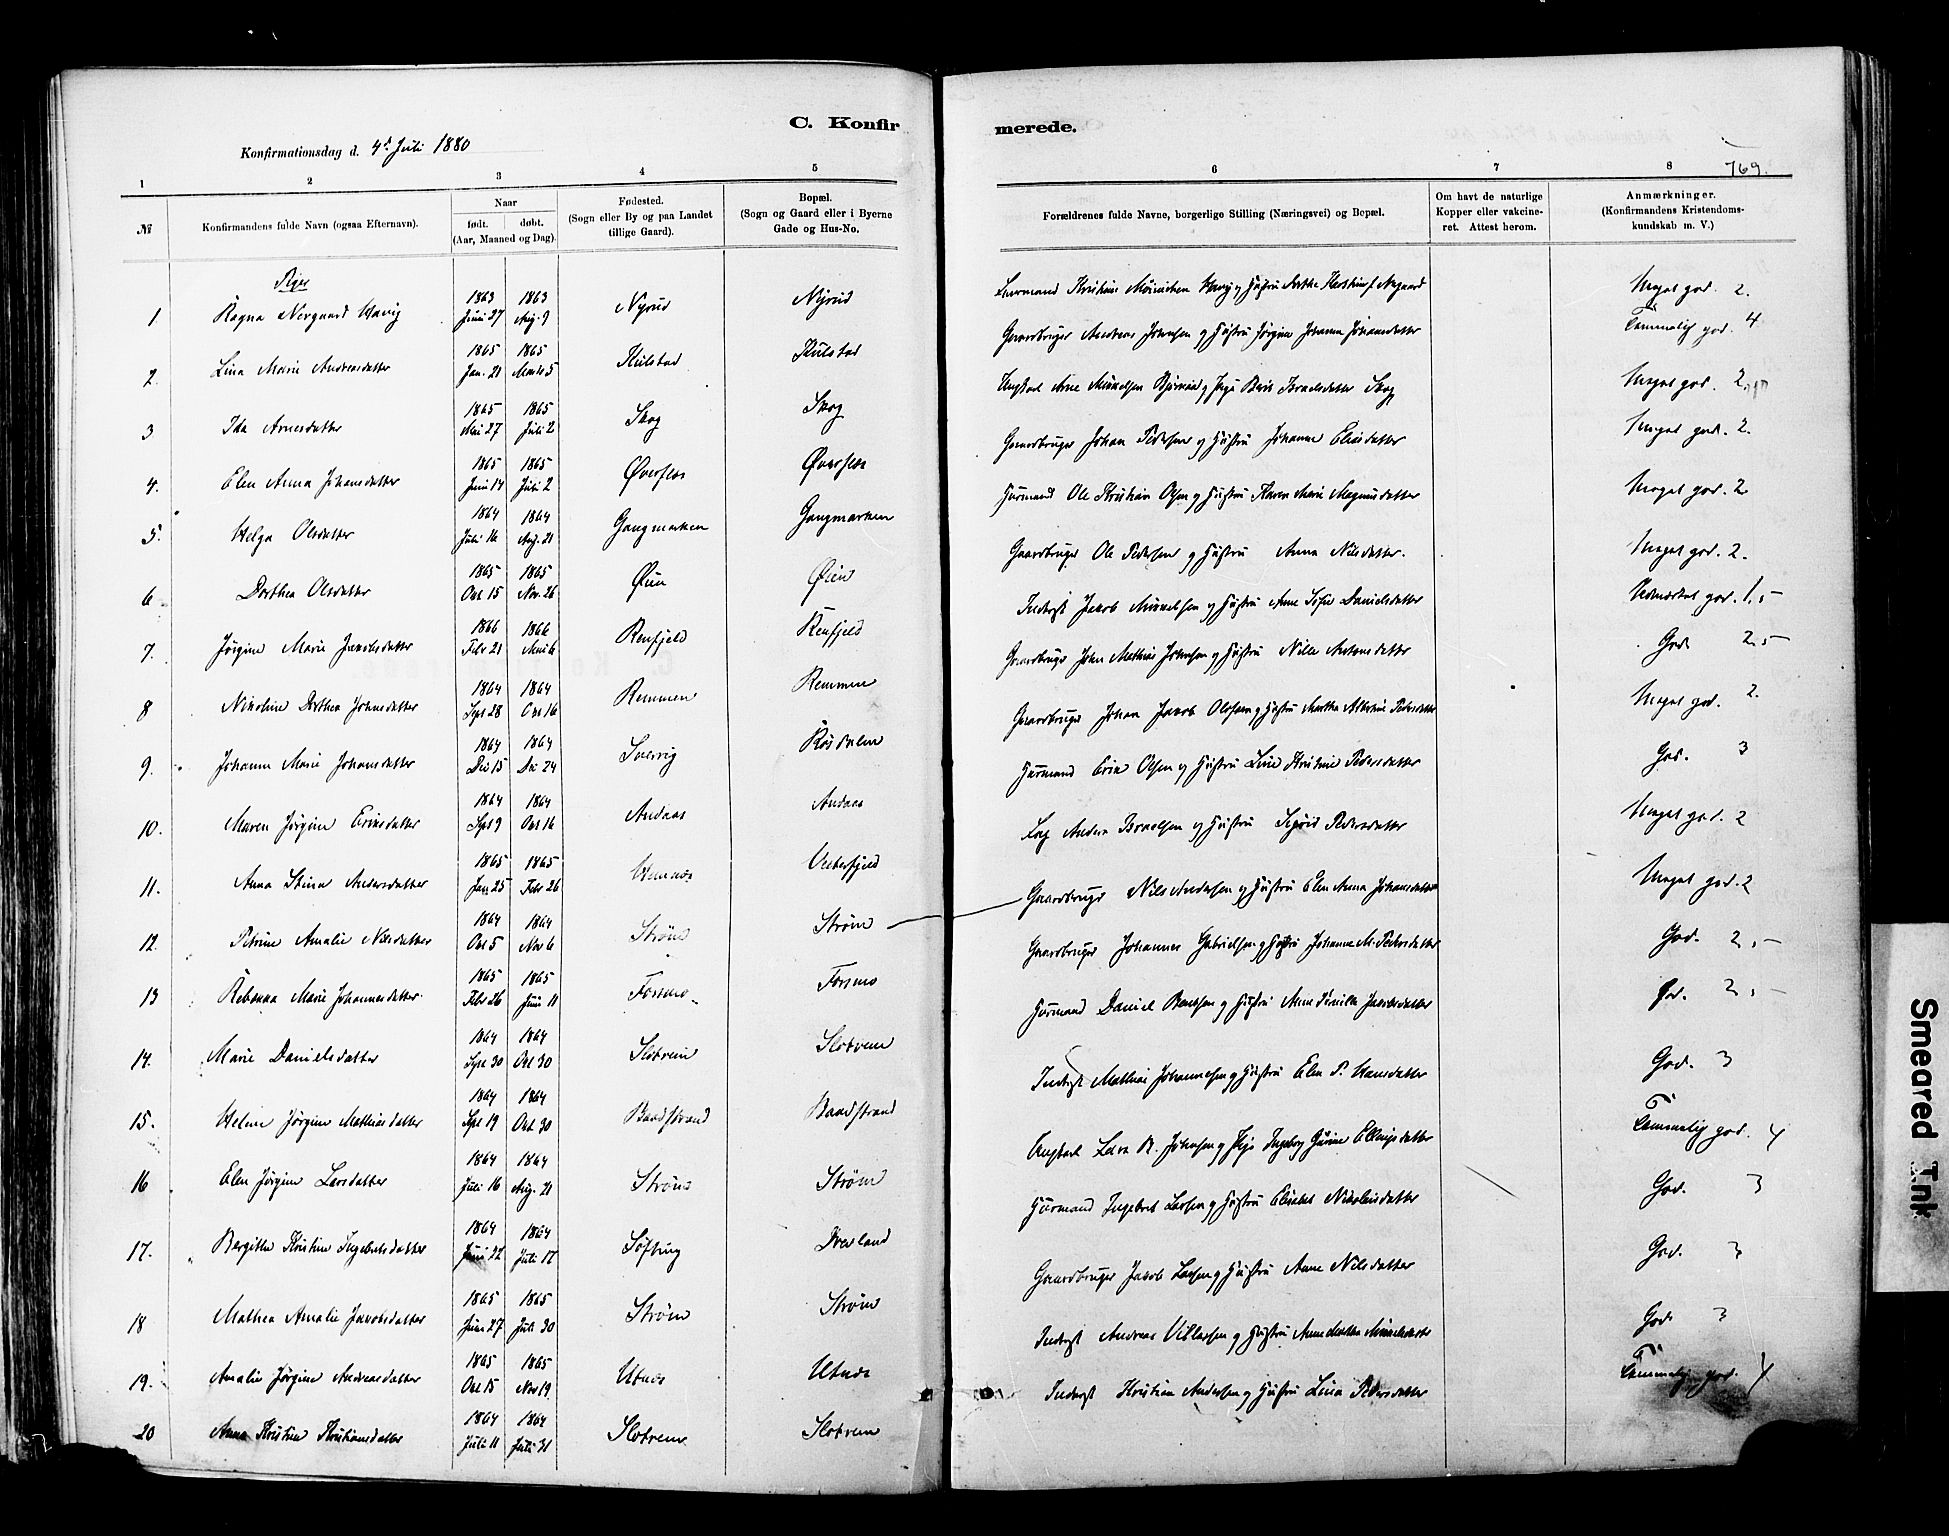 C. Konfirmerede.
Konfirmationsdag d. 4d Juli 1880
769.
1 2 3 4 5 6 7 8
№ Konfirmandens fulde Navn (ogsaa Efternavn). Naar født. døbt. (Aar, Maaned og Dag). Fødested. (Sogn eller By og paa Landet tillige Gaard). Bopæl. (Sogn og Gaard eller i Byerne Gade og Hus-No. Forældrenes fulde Navne, borgerlige Stilling (Næringsvei) og Bopæl. Om havt de naturlige Kopper eller vakcineret. Attest herom. Anmærkninger. (Konfirmandens Kristendomskundskab m. V.)
Piger
1. Ragna Nergaard 1863 Juni 27 1863 Aug. 9 Nyrud Nyrud Meget god. 2.
2. Lina Marie Andreasdatter 1865 Jan. 21 1865 Marts 5 Kulstad Kulstad Gaardbruger Andreas Johnsen og Hustru Jørgine Johanna Johansdatter Temmelig god. 4
3 Ida Arnesdatter 1865 Mai 27 1865 Juli 2 Skog Skog Ungkarl Arne Mikkelsen og Pige Berit Israelsdatter Skog Meget god. 2
4. Elen Anna Johansdatter 1865 Juni 14 1865 Juli 2 Øverflos Øverflos Gaardbruger Johan Pedersen og Hustru Johanna Eliasdatter Meget god. 2.
5. Helga Olsdatter 1864 Juli 16 1864 Aug. 21 Gangmarken Gangmarken Husmand Ole Kristian Olsen og Hustru Karen Marie Magnusdatter Meget god. 2
6 Dorthea Olsdatter 1865 Okt 15 1865 Nov. 26 Øien Øien Gaardbruger Ole Pedersen og Hustru Anna Nilsdatter. Meget god. 2.
7. Jørgine Marie Jakobsdatter 1866 Febr 21 1866 Renfjeld Renfjeld Inderst Jakob Mikkelsen og Hustru Anne Sofie Danielsdatter Udmærket god. 1,5-
8 Nikoline Dorthea Johnsdatter 1864 Sept 28 1864 Okt 16 Remmen Remmen Gaardbruger John Mathias Johnsen og Hustru Nille Antonsdatter God. 2.5-
9. Johanna Marie Johansdatter 1864 Dec 15 1864 Dec 24 Røsdalen Gaardbruger Johan Jakob Olofsen og Hustru Martha Albertine Pedersdatter Meget god. 2.
10. Maren Jørgine Eriksdatter 1864 Sept 9 1864 Okt 16 Andaas Andaas Husmand Erik Olsen og Hustru Line Kristine Pedersdatter God. 3
11. Anna Stina Andersdatter 1865 Jan 25 1865 Febr 26 Hemnæs Vesterfjeld Lap Anders Israelsen og Hustru Sigrid Pedersdatter Meget god. 2
12. Petrine Amalie Nilsdatter 1864 Okt 5 1864 Nov 6 Strøm Strøm Gaardbruger Nils Andersen og Hustru Elen Anna Johansdatter Meget god. 2
13 Rebekka Marie Johannesdatter 1865 Febr 26 1865 Juni 11 Forsmo Forsmo Gaardbruger Johannes Gabrielsen og Hustru Johanna M. Pedersdatter God. 2,-
14. Marie Danielsdatter 1864 Sept 30 1864 Okt 30 Slotrem Slotrem Husmand Daniel Bentsen og Hustru Anne Pernille Jakobsdatter God. 2,-
15. Helene Jørgine Mathiasdatter 1864 Sept 19 1864 Okt 30 Baadstrand Baadstrand Inderst Mathias Johannesen og Hustru Elen P. Hansdatter God. 3
16 Elen Jørgine Larsdatter 1864 Juli 16 1864 Aug. 21 Strøm Strøm Ungkarl Johnsen og Pige Ingeborg Ellingsdatter Temmelig god. 4
17. Bergitha Kristine Ingebretsdatter 1864 Juni 22 1864 Juli 17 Søfting Husmand Ingebret Larsen og Hustru Elisabet Nikolaisdatter God. 3
18 Mathea Amalie Jakobsdatter 1865 Juni 27 1865 Juli 30 Strøm Strøm Gaardbruger Jakob Larsen og Hustru Anne Nilsdatter God. 3
19. Amalie Jørgine Andreasdatter 1865 Okt 15 1865 Nov 19 Utnæs Utnæs Inderst Andreas og Hustru God. 3
20 Anna Kristine Kristiansdatter 1864 Juli 11 1864 Juli 31 Slotrem Slotrem Inderst Kristian Andersen og Hustru Lina Pedersdatter Temmelig god. 4
Smeared Ink